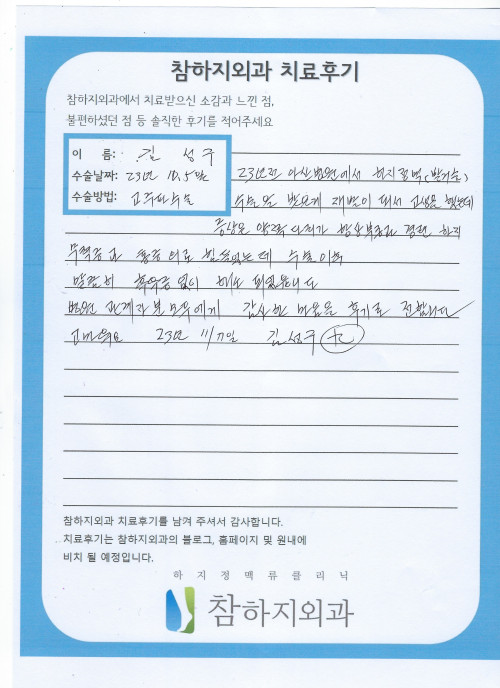 참하지외과 치료후기
참하지외과에서 치료받으신 소감과 느낀 점,
불편하셨던 점 등 솔직한 후기를 적어주세요
이 름: 김 성구
수술날짜: 23년 10.5
수술방법: 고주파수술
23년전 아산병원에서 하지정맥(발거술)
수술을 받았는데 재발이 되서 고생을 했는데
증상은 양쪽 다리가 항상 부종과 경련 하지
무력증과 통증 의로 힘들었는데 수술이후
말끔히 후유증없이 되었습니다
병원 관계자분 모두에게 감사한 마음을 후기로 전합니다
고마워요 23년 11/11일 김성구
참하지외과 치료후기를 남겨 주셔서 감사합니다.
치료후기는 참하지외과의 블로그, 홈페이지 및 원내에
비치 될 예정입니다.
하지정맥류클리닉
참하지외과